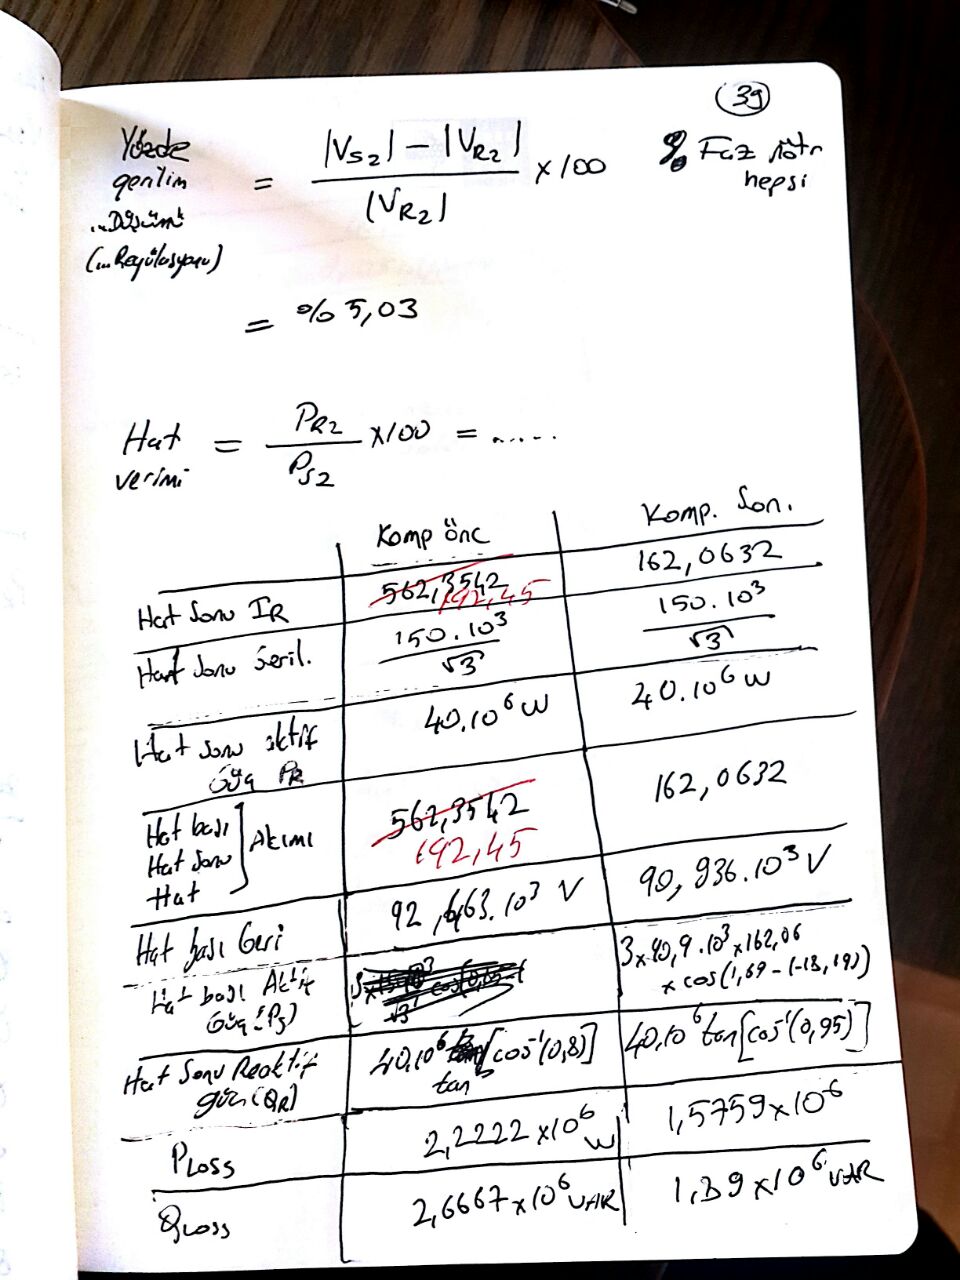 39
Yüzde gerilim Düşümü (Regülasyonu) = |VS2| - |VR2| / |VR2| x100
% Faz nötr hepsi
= %5,03
Hat verimi = PR2 / PS2 x100 = ......
Komp önc | Komp. Son.
Hat Sonu IR | 562,3542 192,45 | 162,0632
Hat Sonu Geril. | 150.10³ / √3 | 150.10³ / √3
Hat Sonu aktif Güç PR | 40.10⁶ W | 40.10⁶ W
Hat başı Hat Sonu Hat ] Akımı | 562,3542 192,45 | 162,0632
Hat başı Geri | 92,663.10³ V | 90,936.10³ V
Hat başı Aktif Güç (PS) | 3x90,9.10³x162,06 x cos(1,69-(-18,19))
Hat Sonu Reaktif gücü (QR) | 40.10⁶ tan[cos⁻¹(0,8)] | 40.10⁶ tan[cos⁻¹(0,95)]
PLOSS | 2,2222x10⁶ W | 1,5759x10⁶
QLOSS | 2,6667x10⁶ VAR | 1,39x10⁶ VAR